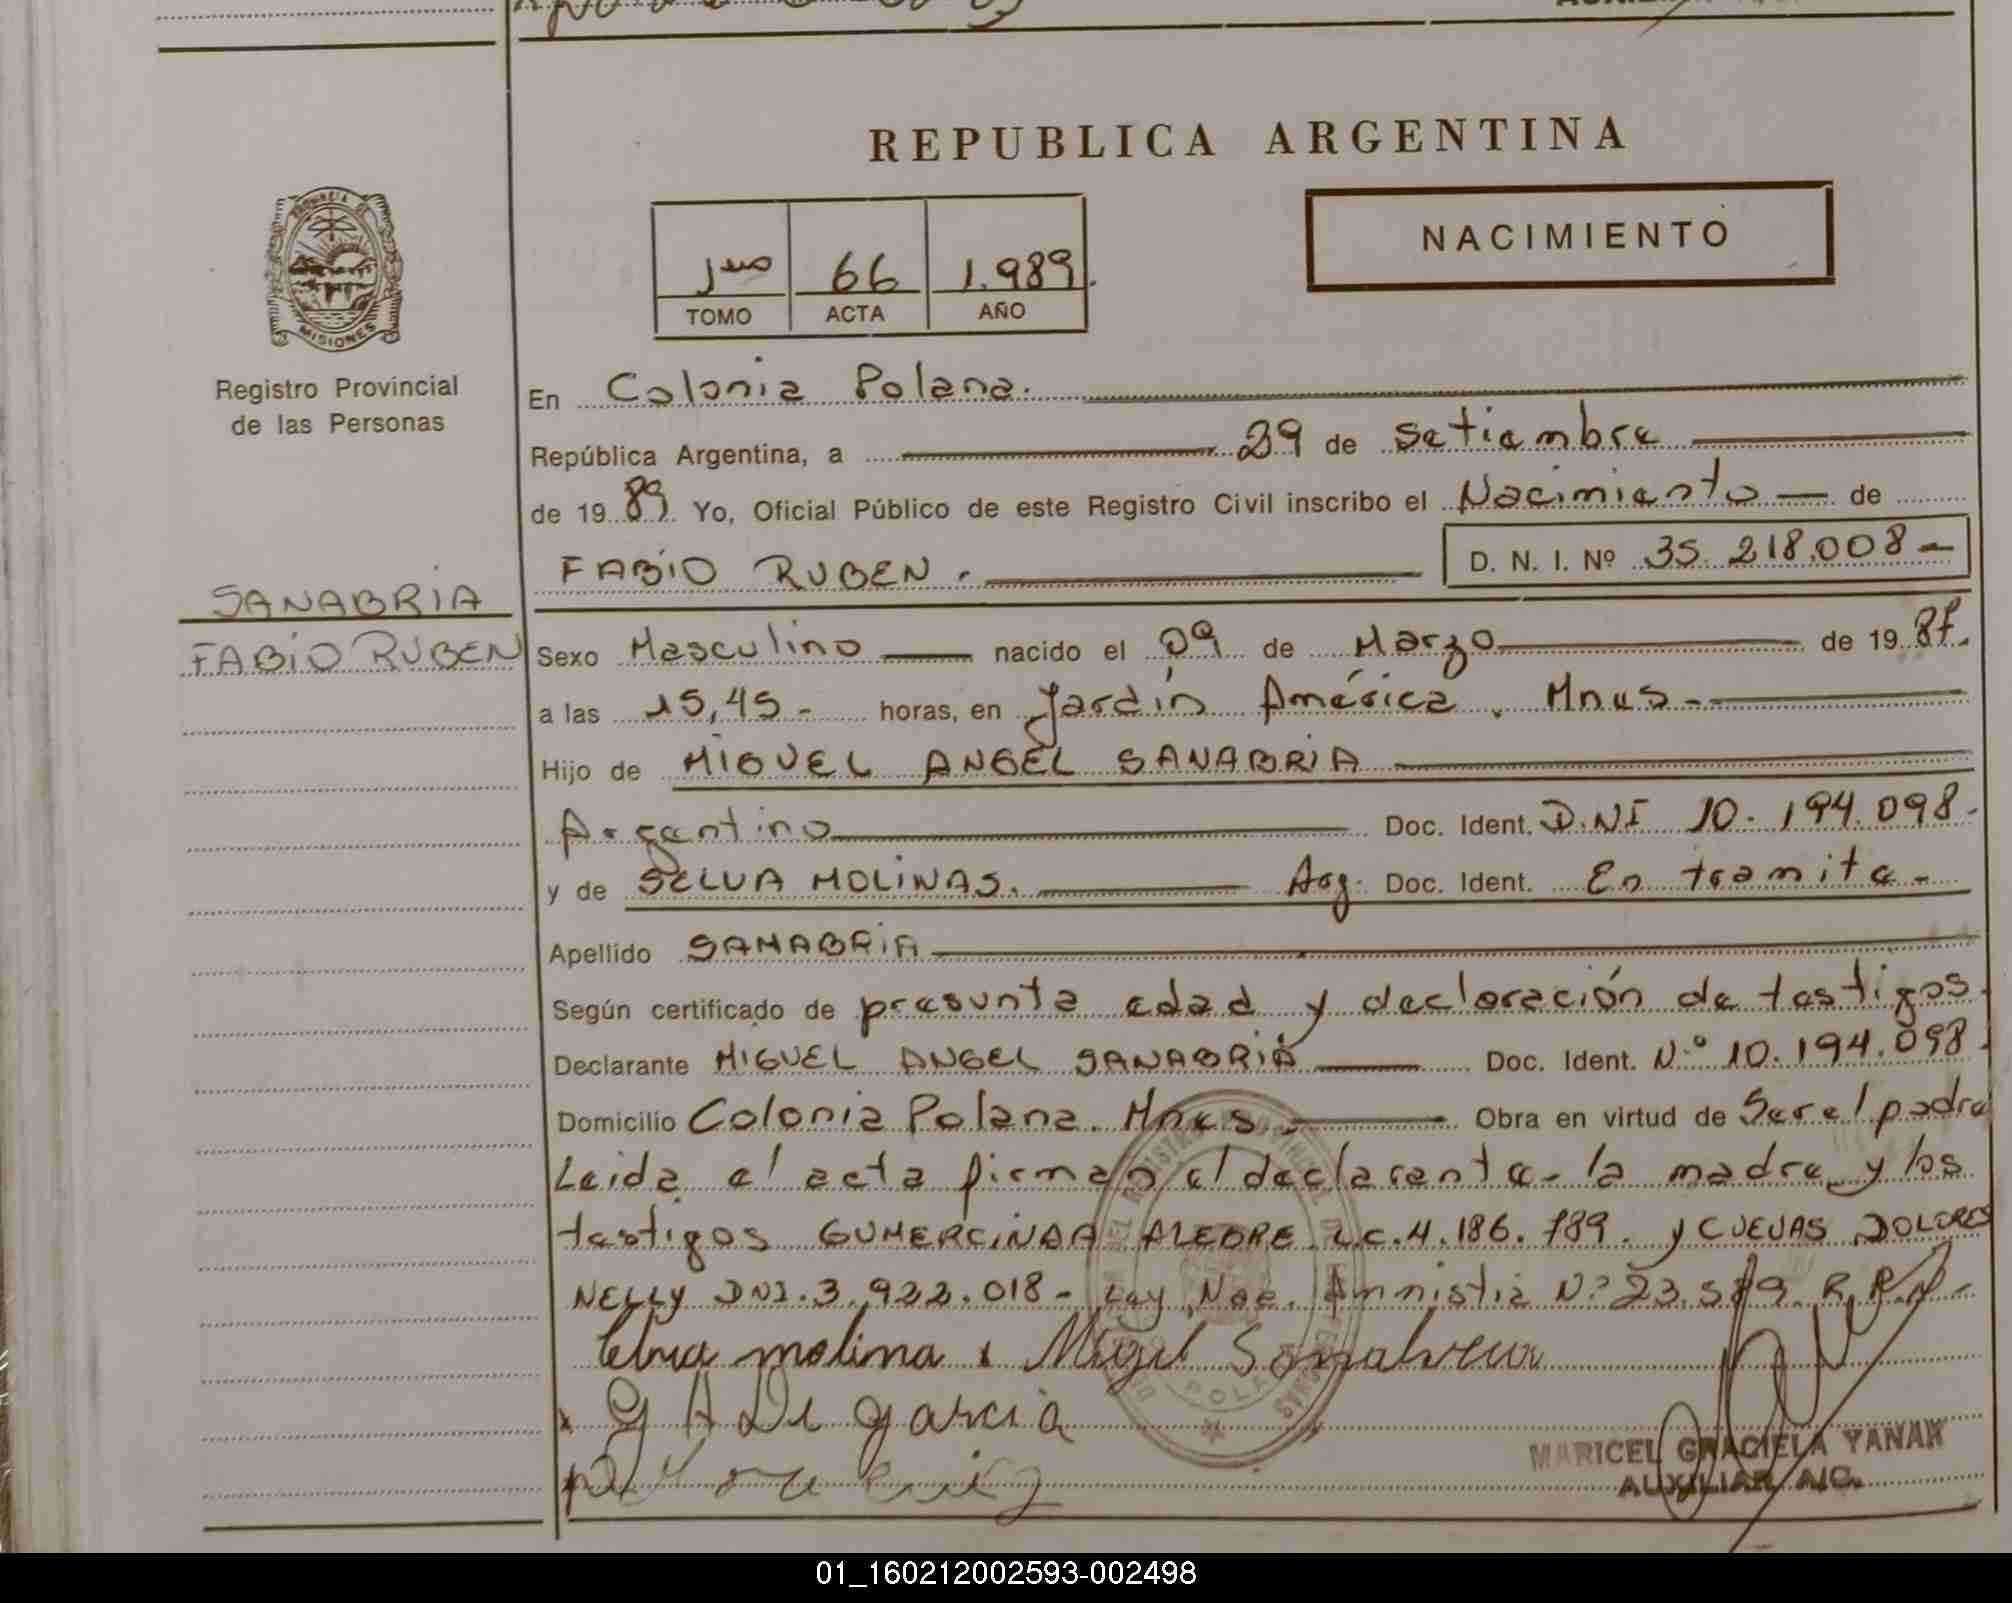 REPUBLICA ARGENTINA
NACIMIENTO
66 1.989.
TOMO ACTA AÑO
PROVINCIA DE
MISIONES
Registro Provincial
de las Personas
SANABRIA
FABIO RUBEN
En Colonia Polana.
República Argentina, a 29 de setiembre
de 19 89 Yo, Oficial Público de este Registro Civil inscribo el Nacimiento — de
FABIO RUBEN. D. N. I. Nº 35.218.008-
Sexo Masculino nacido el 09 de Marzo de 19 87.
a las 15,45- horas, en Jardín América. Mnes-
Hijo de MIGUEL ANGEL SANABRIA
Argentino Doc. Ident. D.NI 10.194.098-
y de SELVA MOLINAS. Arg. Doc. Ident. En tramite-
Apellido SANABRIA
Según certificado de presunta edad y declaración de testigos
Declarante MIGUEL ANGEL SANABRIA Doc. Ident. N.º 10.194.098.
Domicilio Colonia Polana. Mnes. Obra en virtud de Ser el padre
Leida el acta firman el declarante- la madre y los
testigos GUMERCINDA ALEGRE L.C.4.186.789. y CUEVAS DOLORES
NELLY DNI.3.922.018- Ley Nac. Amnistia Nº 23.
molina x Migel
x G A De garcia
MARICEL GRACIELA YANAK
AUXILIAR A/C.
01_160212002593-002498